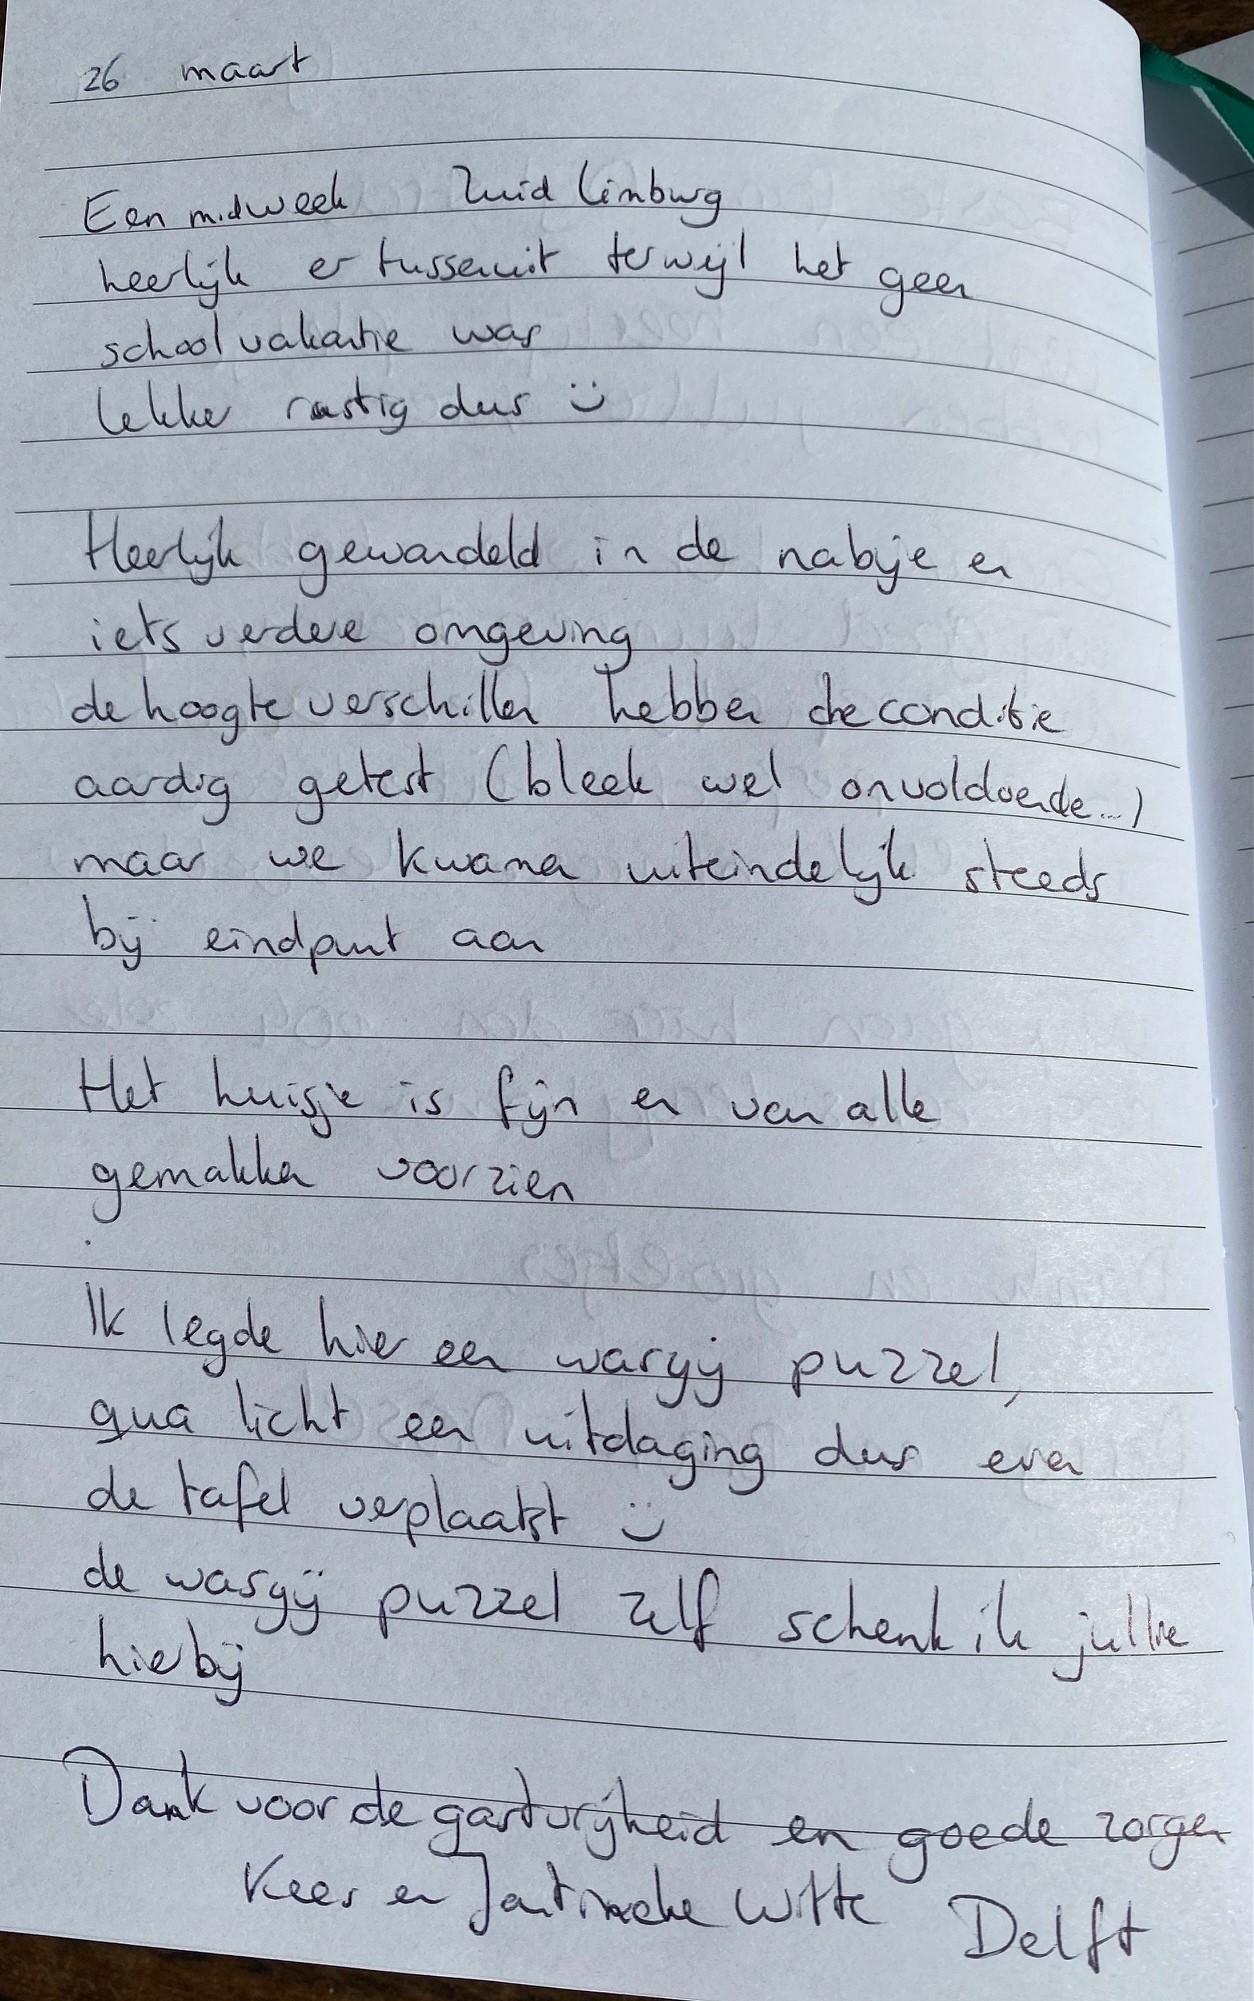 26 maart
Een midweek Zuid Limburg
heerlijk er tussenuit terwijl het geen
schoolvakantie was
lekker rustig dus :)
Heerlijk gewandeld in de nabije en
iets verdere omgeving
de hoogteverschillen hebben de conditie
aardig getest (bleek wel onvoldoende...)
maar we kwamen uiteindelijk steeds
bij eindpunt aan
Het huisje is fijn en van alle
gemakken voorzien
Ik legde hier een wasgij puzzel,
qua licht een uitdaging dus even
de tafel verplaatst :)
de wasgij puzzel zelf schenk ik jullie
hierbij
Dank voor de gastvrijheid en goede zorgen
Kees en Witte Delft